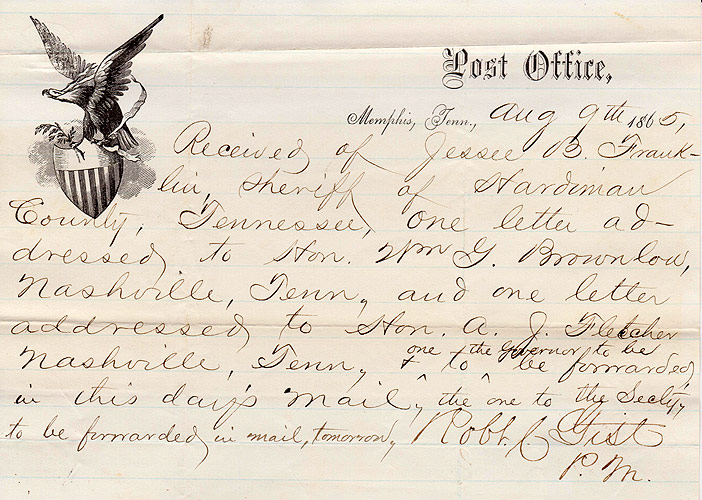 Post Office,
Memphis, Tenn., Aug 9th 1865,
Received of Jessee B. Frank-
lin, Sheriff of Hardiman
County, Tennessee, one letter ad-
dressed to Hon. Wm G. Brownlow,
Nashville, Tenn, and one letter
addressed to Hon. A. J. Fletcher
one the Governor to be
Nashville, Tenn, to be forwarded,
in this day's mail, the one to the Secty,
to be forwarded in mail, tomorrow, Robt. C Gist
P. M.